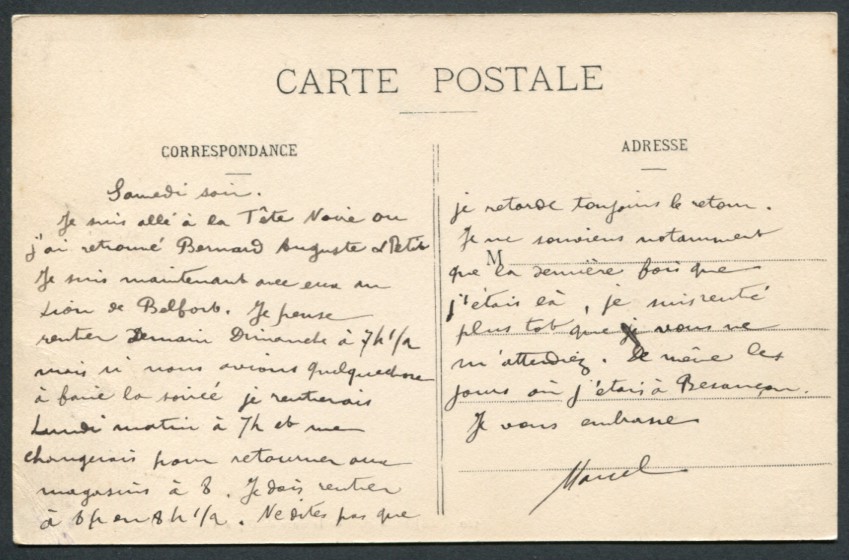 CARTE POSTALE
CORRESPONDANCE
Samedi soir.
Je suis allé à la Tête Noire ou
j'ai retrouvé Bernard Auguste & Petit
Je suis maintenant avec eux au
Lion de Belfort. Je pense
rentrer Demain Dimanche à 7h 1/2
mais si nous avions quelquechose
à faire la soirée je rentrerais
Lundi matin à 7h et me
changerais pour retourner aux
magasins à 8. Je dois rentrer
à 8h ou 8h 1/2. Ne dites pas que
ADRESSE
je retarde toujours le retour.
Je me souviens notamment
M
que la dernière fois que
j'étais là, je suis rentré
plus tot que je vous ne
m'attendiez. De même les
jours où j'étais à Besançon.
Je vous embrasse
Marcel